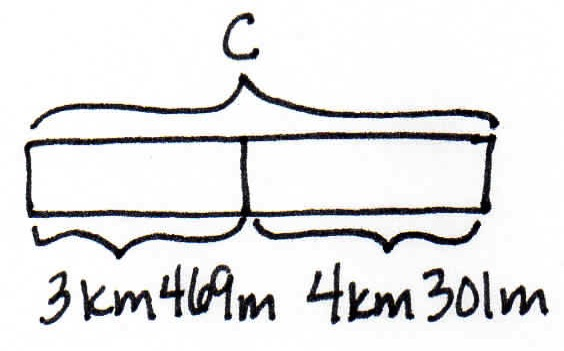 C
3km469m 4km301m